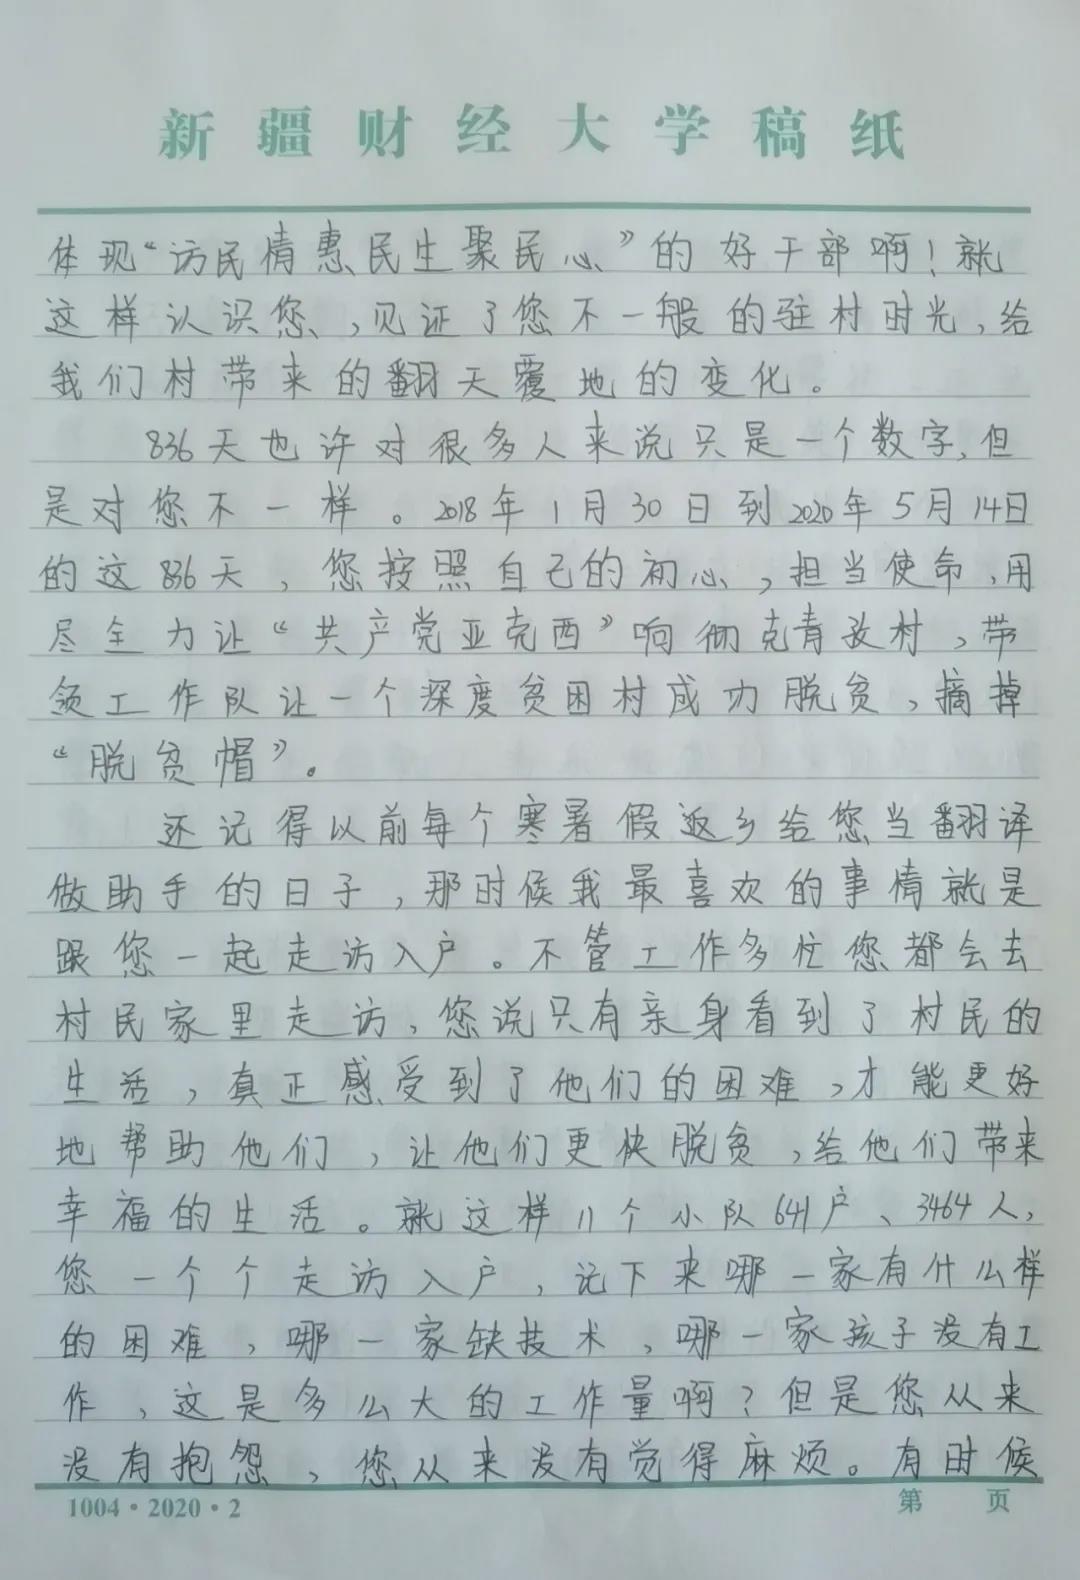 新疆财经大学稿纸
体现“访民情惠民生聚民心”的好干部啊！就
这样认识您、，见证了您不一般的驻村时光，给
我们村带来的翻天覆地的变化。
836天也许对很多人来说只是一个数字，但
是对您不一样。2018年1月30日到2020年5月14日
的这836天，您按照自己的初心，担当使命，用
尽全力让“共产党亚克西”响彻克青孜村，带
领工作队让一个深度贫困村成功脱贫，摘掉
“脱贫帽”。
还记得以前每个寒暑假返乡给您当翻译
做助手的日子，那时候我最喜欢的事情就是
跟您一起走访入户。不管工作多忙您都会去
村民家里走访，您说只有亲身看到了村民的
生活，真正感受到了他们的困难，才能更好
地帮助他们，让他们更快脱贫，给他们带来
幸福的生活。就这样11个小队641户、3464人，
您一个个走访入户，记下来哪一家有什么样
的困难，哪一家缺技术，哪一家孩子没有工
作，这是多么大的工作量啊？但是您从来
没有抱怨，您从来没有觉得麻烦。有时候
1004·2020·2
第 页